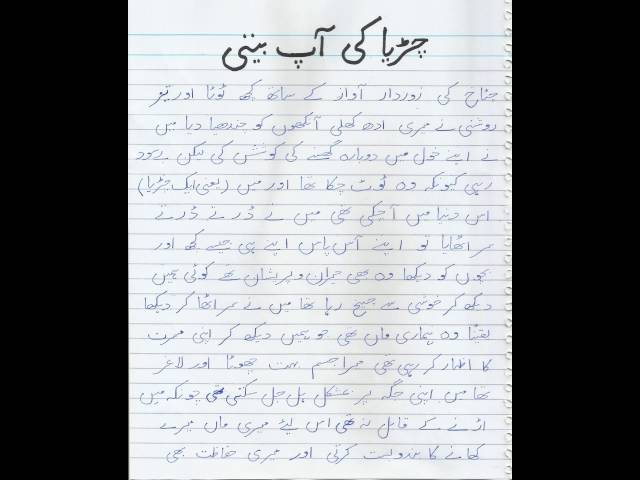 چڑیا کی آپ بیتی
چٹاخ کی زوردار آواز کے ساتھ کچھ ٹوٹا اور تیز
روشنی نے میری ادھ کھلی آنکھوں کو چندھیا دیا میں
نے اپنے خول میں دوبارہ گھسنے کی کوشش کی لیکن بے سود
رہی کیونکہ وہ ٹوٹ چکا تھا اور میں (یعنی ایک چڑیا)
اس دنیا میں آ چکی تھی میں نے ڈرتے ڈرتے
سر اٹھایا تو اپنے آس پاس اپنے ہی جیسے کچھ اور
بچوں کو دیکھا وہ بھی حیران و پریشان تھے کوئی ہمیں
دیکھ کر خوشی سے چیخ رہا تھا میں نے سر اٹھا کر دیکھا
یقیناً وہ ہماری ماں تھی جو ہمیں دیکھ کر اپنی مسرت
کا اظہار کر رہی تھی میرا جسم بہت چھوٹا اور لاغر
تھا میں اپنی جگہ پر بمشکل ہل جل سکتی تھی چونکہ میں
اڑنے کے قابل نہ تھی اس لیئے میری ماں میرے
کھانے کا بندوبست کرتی اور میری حفاظت بھی